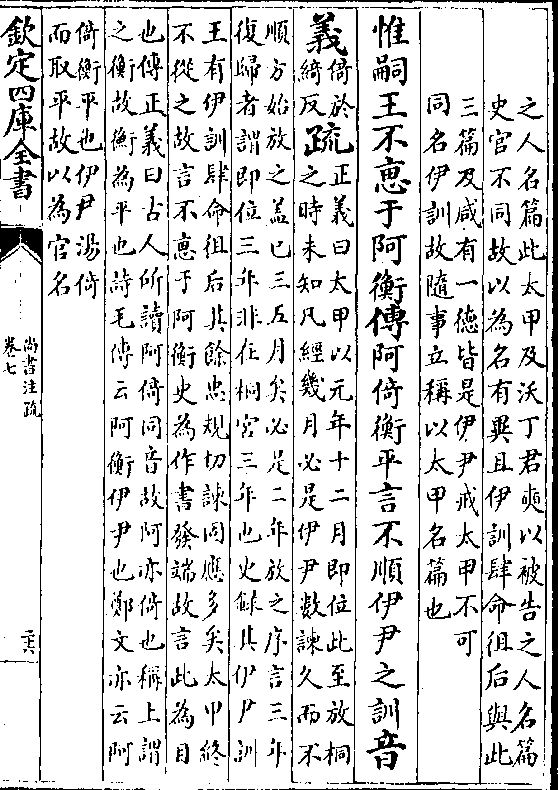 之人名篇此太甲及沃丁君奭以被告之人名篇
史官不同故以為名有異且伊訓肆命徂后與此
三篇及咸有一德皆是伊尹戒太甲不可
同名伊訓故隨事立稱以太甲名篇也
惟嗣王不惠于阿衡傳阿倚衡平言不順伊尹之訓音
義倚於綺反疏正義曰太甲以元年十二月即位此至放桐
之時未知凡經幾月必是伊尹數諫久而不
順方始放之蓋已三五月矣必是二年放之序言三年
復歸者謂即位三年非在桐宮三年也史錄其伊尹訓
王有伊訓肆命徂后其餘忠規切諫固應多矣太甲終
不從之故言不惠于阿衡史為作書發端故言此為目
也傳正義曰古人所讀阿倚同音故阿亦倚也稱上謂
之衡故衡為平也詩毛傳云阿衡伊尹也鄭文亦云阿
倚衡平也伊尹湯倚
而取平故以為官名
欽定四庫全書
尚書注疏
卷七
二六